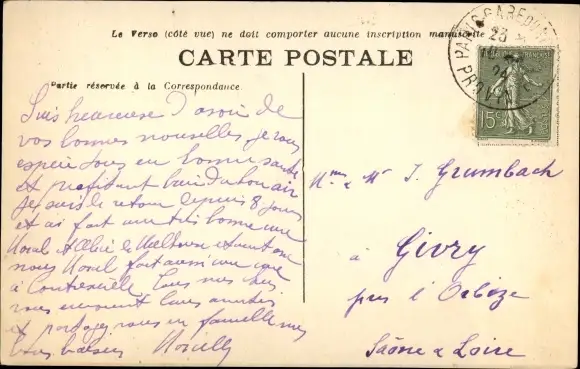 Le Verso (côté vue) ne doit comporter aucune inscription manuscrite
CARTE POSTALE
Partie réservée à la Correspondance
PARIS GARE DU
23
15c
Suis heureuse d'avoir de
vos bonnes nouvelles, je vous
espère tous en bonne santé
et profitant bien du bon air
je suis de retour depuis 8 jours
et ai fait une très bonne cure
et
nous fait aussi une cure
à Contrexeville tous
vous envoient leurs amitiés
et partagez vous en famille mes
bons baisers
Mme & Mr J. Grumbach
à Givry
près l'Orbize
Saône & Loire